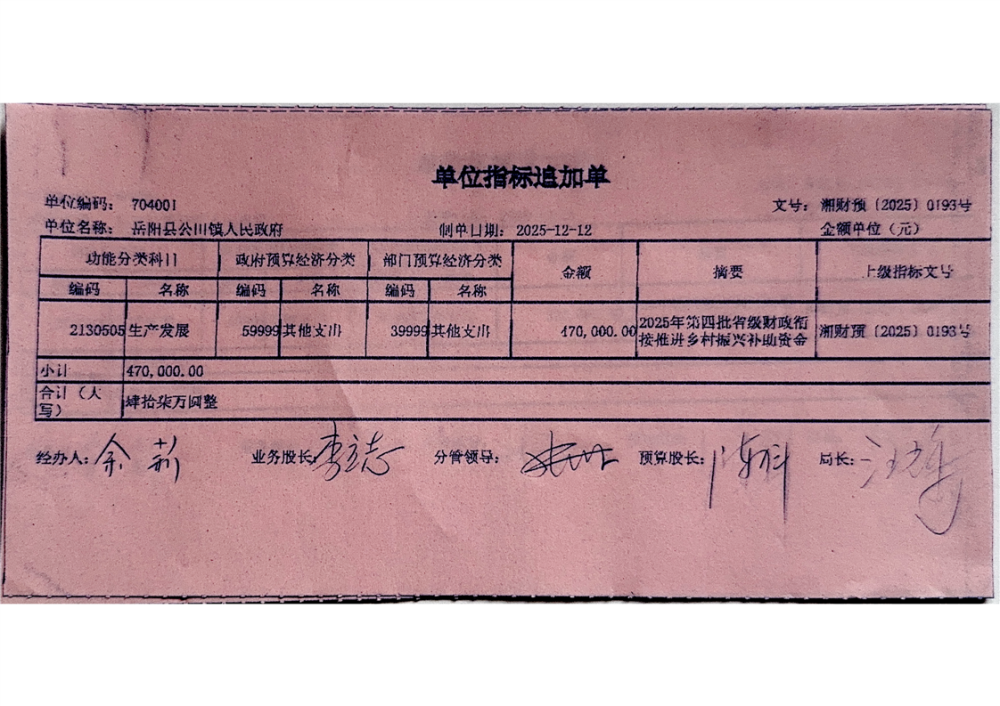 单位指标追加单
单位编码： 704001 文号： 湘财预〔2025〕0193号
单位名称： 岳阳县公田镇人民政府 制单日期： 2025-12-12 金额单位（元）
功能分类科目 政府预算经济分类 部门预算经济分类 金额 摘要 上级指标文号
编码 名称 编码 名称 编码 名称
2130505 生产发展 59999 其他支出 39999 其他支出 470,000.00 2025年第四批省级财政衔接推进乡村振兴补助资金 湘财预〔2025〕0193号
小计 470,000.00
合计（大写） 肆拾柒万圆整
经办人： 余 业务股长： 李志 分管领导： 预算股长： 局长： 汪